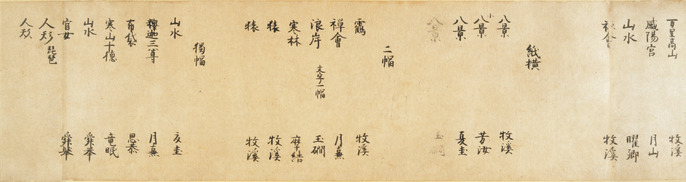 百里高山
咸陽宮 月山
山水 曜卿
牧溪
紙横
八景 牧溪
八景 芳汝
八景 夏圭
八景 玉澗
二幅
鶴 牧溪
禅會 月蕪
浪岸 文字二幅 玉澗
寒林
猿 牧溪
猿 牧溪
獨幅
山水 夏圭
釋迦三尊 月蕪
布袋 思恭
寒山十德 章眠
山水 舜舉
官女 舜舉
人形 琵琶
人形